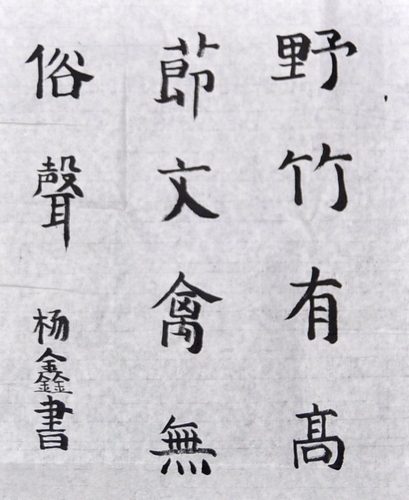 野竹有髙
節文禽無
俗聲
杨鑫書